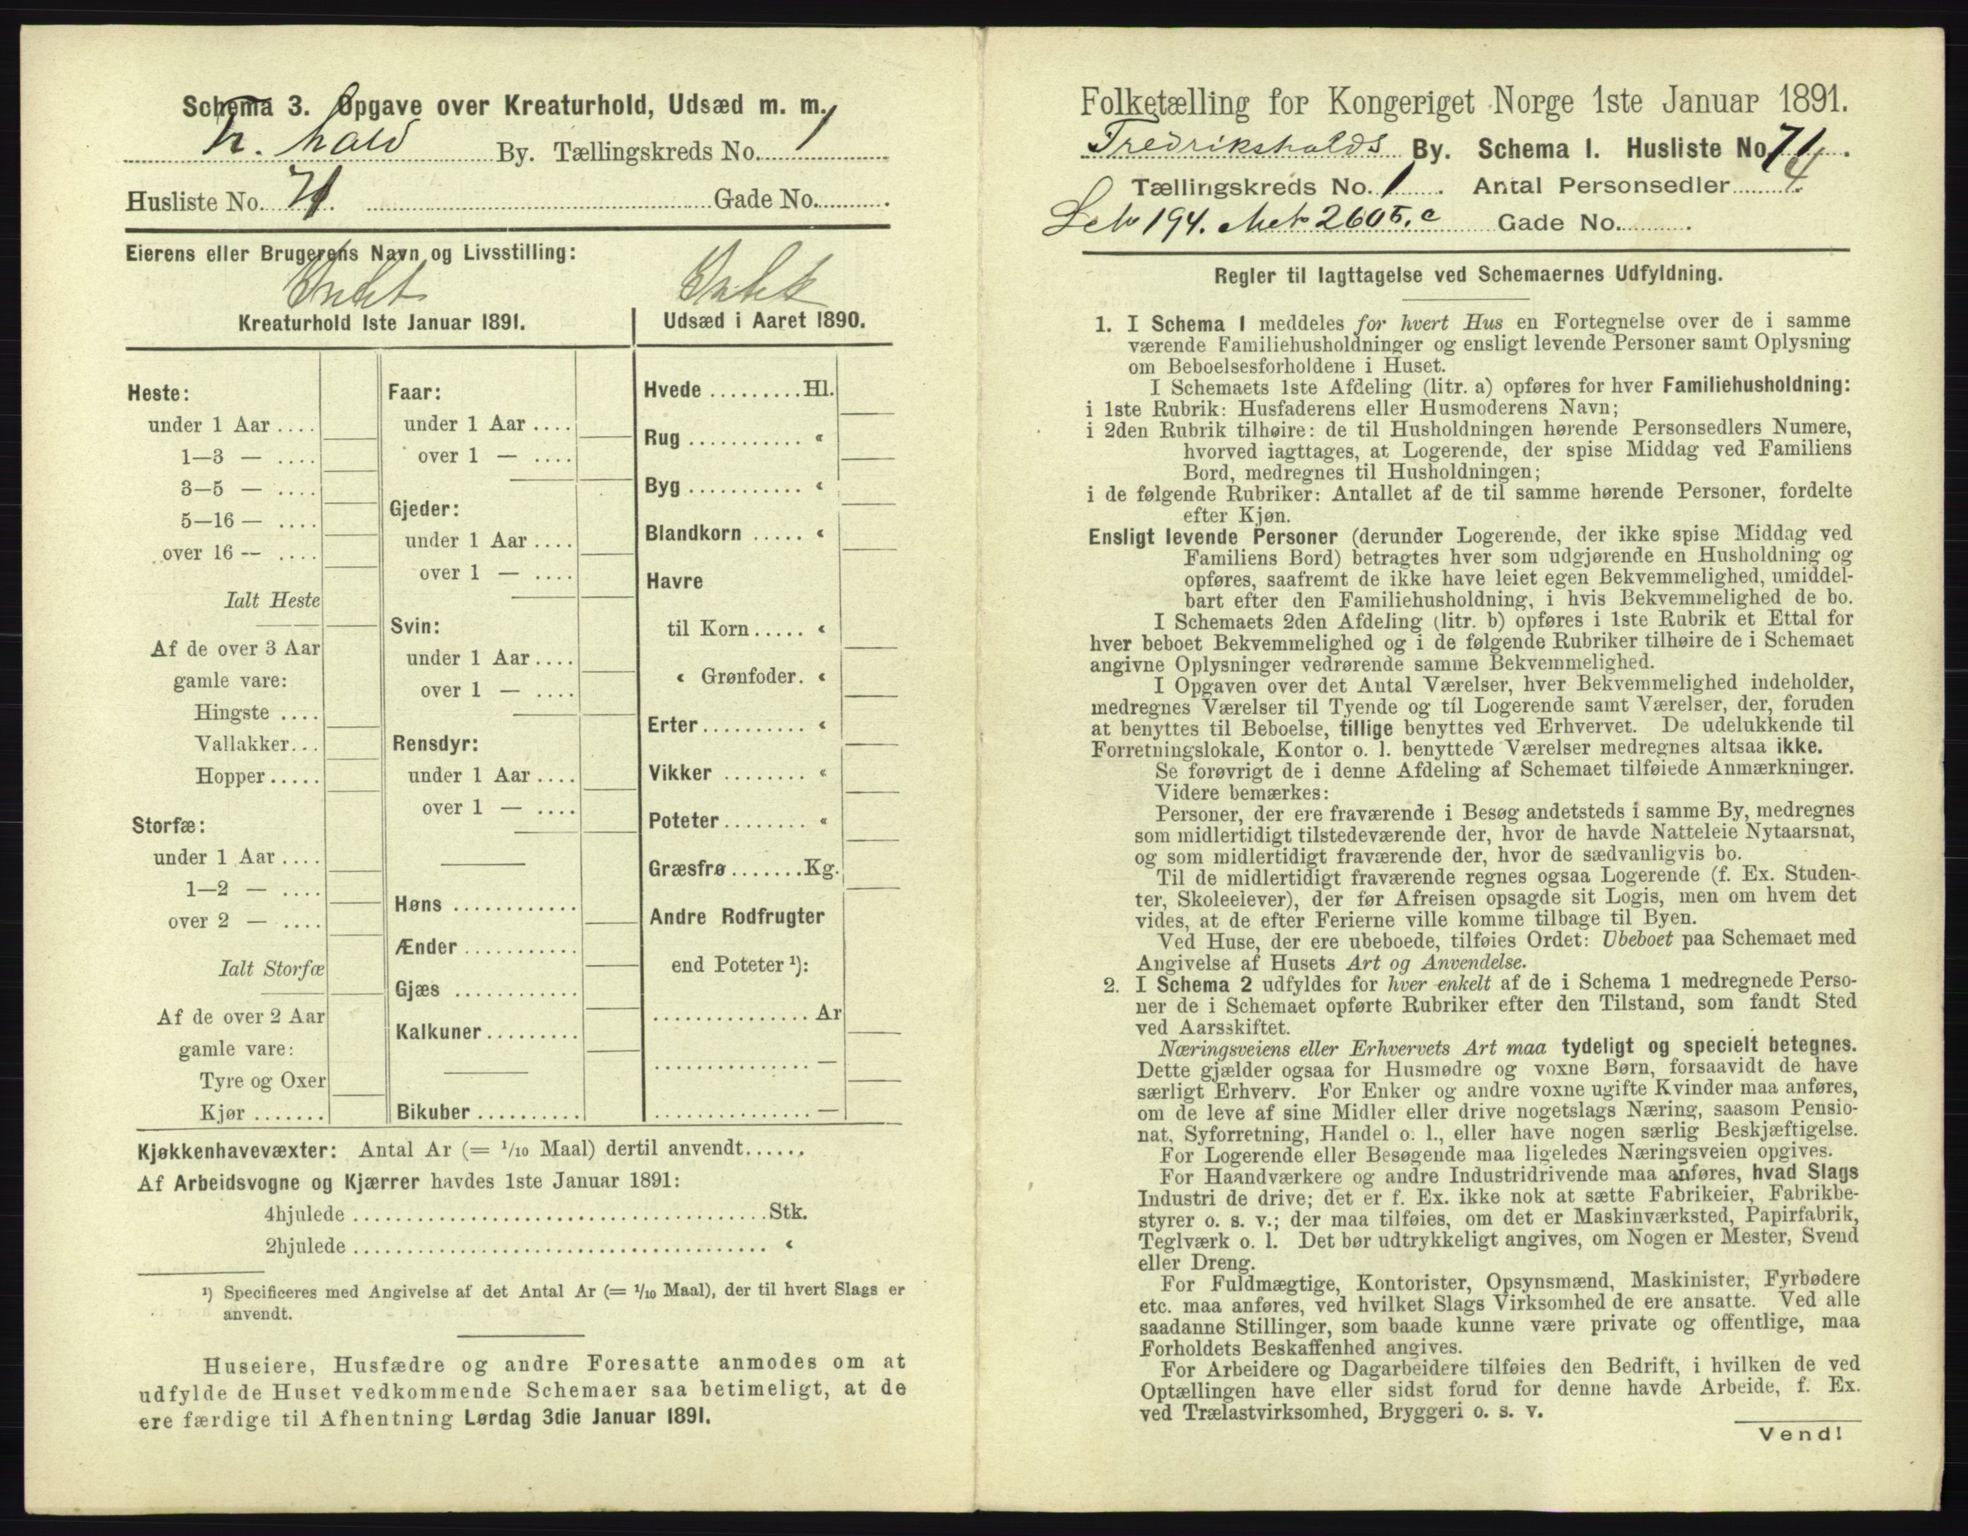 Schema 3. Opgave over Kreaturhold, Udsæd m. m.
hald By. Tællingskreds No. 1
Husliste No. 71. Gade No.
Eierens eller Brugerens Navn og Livsstilling:
Kreaturhold 1ste Januar 1891.
Heste:
under 1 Aar ....
1—3 — ....
3—5 — ....
5—16 — ....
over 16 — ....
Ialt Heste
Af de over 3 Aar
gamle vare:
Hingste ....
Vallakker...
Hopper.....
Storfæ:
under 1 Aar ....
1—2 — ....
over 2 — ....
Ialt Storfæ
Af de over 2 Aar
gamle vare:
Tyre og Oxer
Kjør .......
Faar:
under 1 Aar ....
over 1 — ....
Gjeder:
under 1 Aar ....
over 1 — ....
Svin:
under 1 Aar ....
over 1 — ....
Rensdyr:
under 1 Aar ....
over 1 — ....
Høns ............
Ænder ............
Gjæs ............
Kalkuner .........
Bikuber ..........
Udsæd i Aaret 1890.
Hvede .........Hl.
Rug ........... «
Byg ........... «
Blandkorn ..... «
Havre
til Korn ..... «
« Grønfoder. «
Erter.......... «
Vikker ........ «
Poteter........ «
Græsfrø .......Kg.
Andre Rodfrugter
end Poteter ¹):
............... Ar
............... —
............... —
Kjøkkenhavevæxter: Antal Ar (= 1/10 Maal) dertil anvendt......
Af Arbeidsvogne og Kjærrer havdes 1ste Januar 1891:
4hjulede ........................................Stk.
2hjulede ........................................ «
¹) Specificeres med Angivelse af det Antal Ar (= 1/10 Maal), der til hvert Slags er
anvendt.
Huseiere, Husfædre og andre Foresatte anmodes om at
udfylde de Huset vedkommende Schemaer saa betimeligt, at de
ere færdige til Afhentning Lørdag 3die Januar 1891.
Folketælling for Kongeriget Norge 1ste Januar 1891.
Fredrikshalds By. Schema I. Husliste No. 71.
Tællingskreds No. 1. Antal Personsedler 4.
194. 2605.c Gade No.
Regler til Iagttagelse ved Schemaernes Udfyldning.
1. I Schema 1 meddeles for hvert Hus en Fortegnelse over de i samme
værende Familiehusholdninger og ensligt levende Personer samt Oplysning
om Beboelsesforholdene i Huset.
I Schemaets 1ste Afdeling (litr. a) opføres for hver Familiehusholdning:
i 1ste Rubrik: Husfaderens eller Husmoderens Navn;
i 2den Rubrik tilhøire: de til Husholdningen hørende Personsedlers Numere,
hvorved iagttages, at Logerende, der spise Middag ved Familiens
Bord, medregnes til Husholdningen;
i de følgende Rubriker: Antallet af de til samme hørende Personer, fordelte
efter Kjøn.
Ensligt levende Personer (derunder Logerende, der ikke spise Middag ved
Familiens Bord) betragtes hver som udgjørende en Husholdning og
opføres, saafremt de ikke have leiet egen Bekvemmelighed, umiddel-
bart efter den Familiehusholdning, i hvis Bekvemmelighed de bo.
I Schemaets 2den Afdeling (litr. b) opføres i 1ste Rubrik et Ettal for
hver beboet Bekvemmelighed og i de følgende Rubriker tilhøire de i Schemaet
angivne Oplysninger vedrørende samme Bekvemmelighed.
I Opgaven over det Antal Værelser, hver Bekvemmelighed indeholder,
medregnes Værelser til Tyende og til Logerende samt Værelser, der, foruden
at benyttes til Beboelse, tillige benyttes ved Erhvervet. De udelukkende til
Forretningslokale, Kontor o. l. benyttede Værelser medregnes altsaa ikke.
Se forøvrigt de i denne Afdeling af Schemaet tilføiede Anmærkninger.
Videre bemærkes:
Personer, der ere fraværende i Besøg andetsteds i samme By, medregnes
som midlertidigt tilstedeværende der, hvor de havde Natteleie Nytaarsnat,
og som midlertidigt fraværende der, hvor de sædvanligvis bo.
Til de midlertidigt fraværende regnes ogsaa Logerende (f. Ex. Studen-
ter, Skoleelever), der før Afreisen opsagde sit Logis, men om hvem det
vides, at de efter Ferierne ville komme tilbage til Byen.
Ved Huse, der ere ubeboede, tilføies Ordet: Ubeboet paa Schemaet med
Angivelse af Husets Art og Anvendelse.
2. I Schema 2 udfyldes for hver enkelt af de i Schema 1 medregnede Perso-
ner de i Schemaet opførte Rubriker efter den Tilstand, som fandt Sted
ved Aarsskiftet.
Næringsveiens eller Erhvervets Art maa tydeligt og specielt betegnes.
Dette gjælder ogsaa for Husmødre og voxne Børn, forsaavidt de have
særligt Erhverv. For Enker og andre voxne ugifte Kvinder maa anføres,
om de leve af sine Midler eller drive nogetslags Næring, saasom Pensio-
nat, Syforretning, Handel o. l., eller have nogen særlig Beskjæftigelse.
For Logerende eller Besøgende maa ligeledes Næringsveien opgives.
For Haandværkere og andre Industridrivende maa anføres, hvad Slags
Industri de drive; det er f. Ex. ikke nok at sætte Fabrikeier, Fabrikbe-
styrer o. s. v.; der maa tilføies, om det er Maskinværksted, Papirfabrik,
Teglværk o. l. Det bør udtrykkeligt angives, om Nogen er Mester, Svend
eller Dreng.
For Fuldmægtige, Kontorister, Opsynsmænd, Maskinister, Fyrbødere
etc. maa anføres, ved hvilket Slags Virksomhed de ere ansatte. Ved alle
saadanne Stillinger, som baade kunne være private og offentlige, maa
Forholdets Beskaffenhed angives.
For Arbeidere og Dagarbeidere tilføies den Bedrift, i hvilken de ved
Optællingen have eller sidst forud for denne havde Arbeide, f. Ex.
ved Trælastvirksomhed, Bryggeri o. s. v.
Vend!